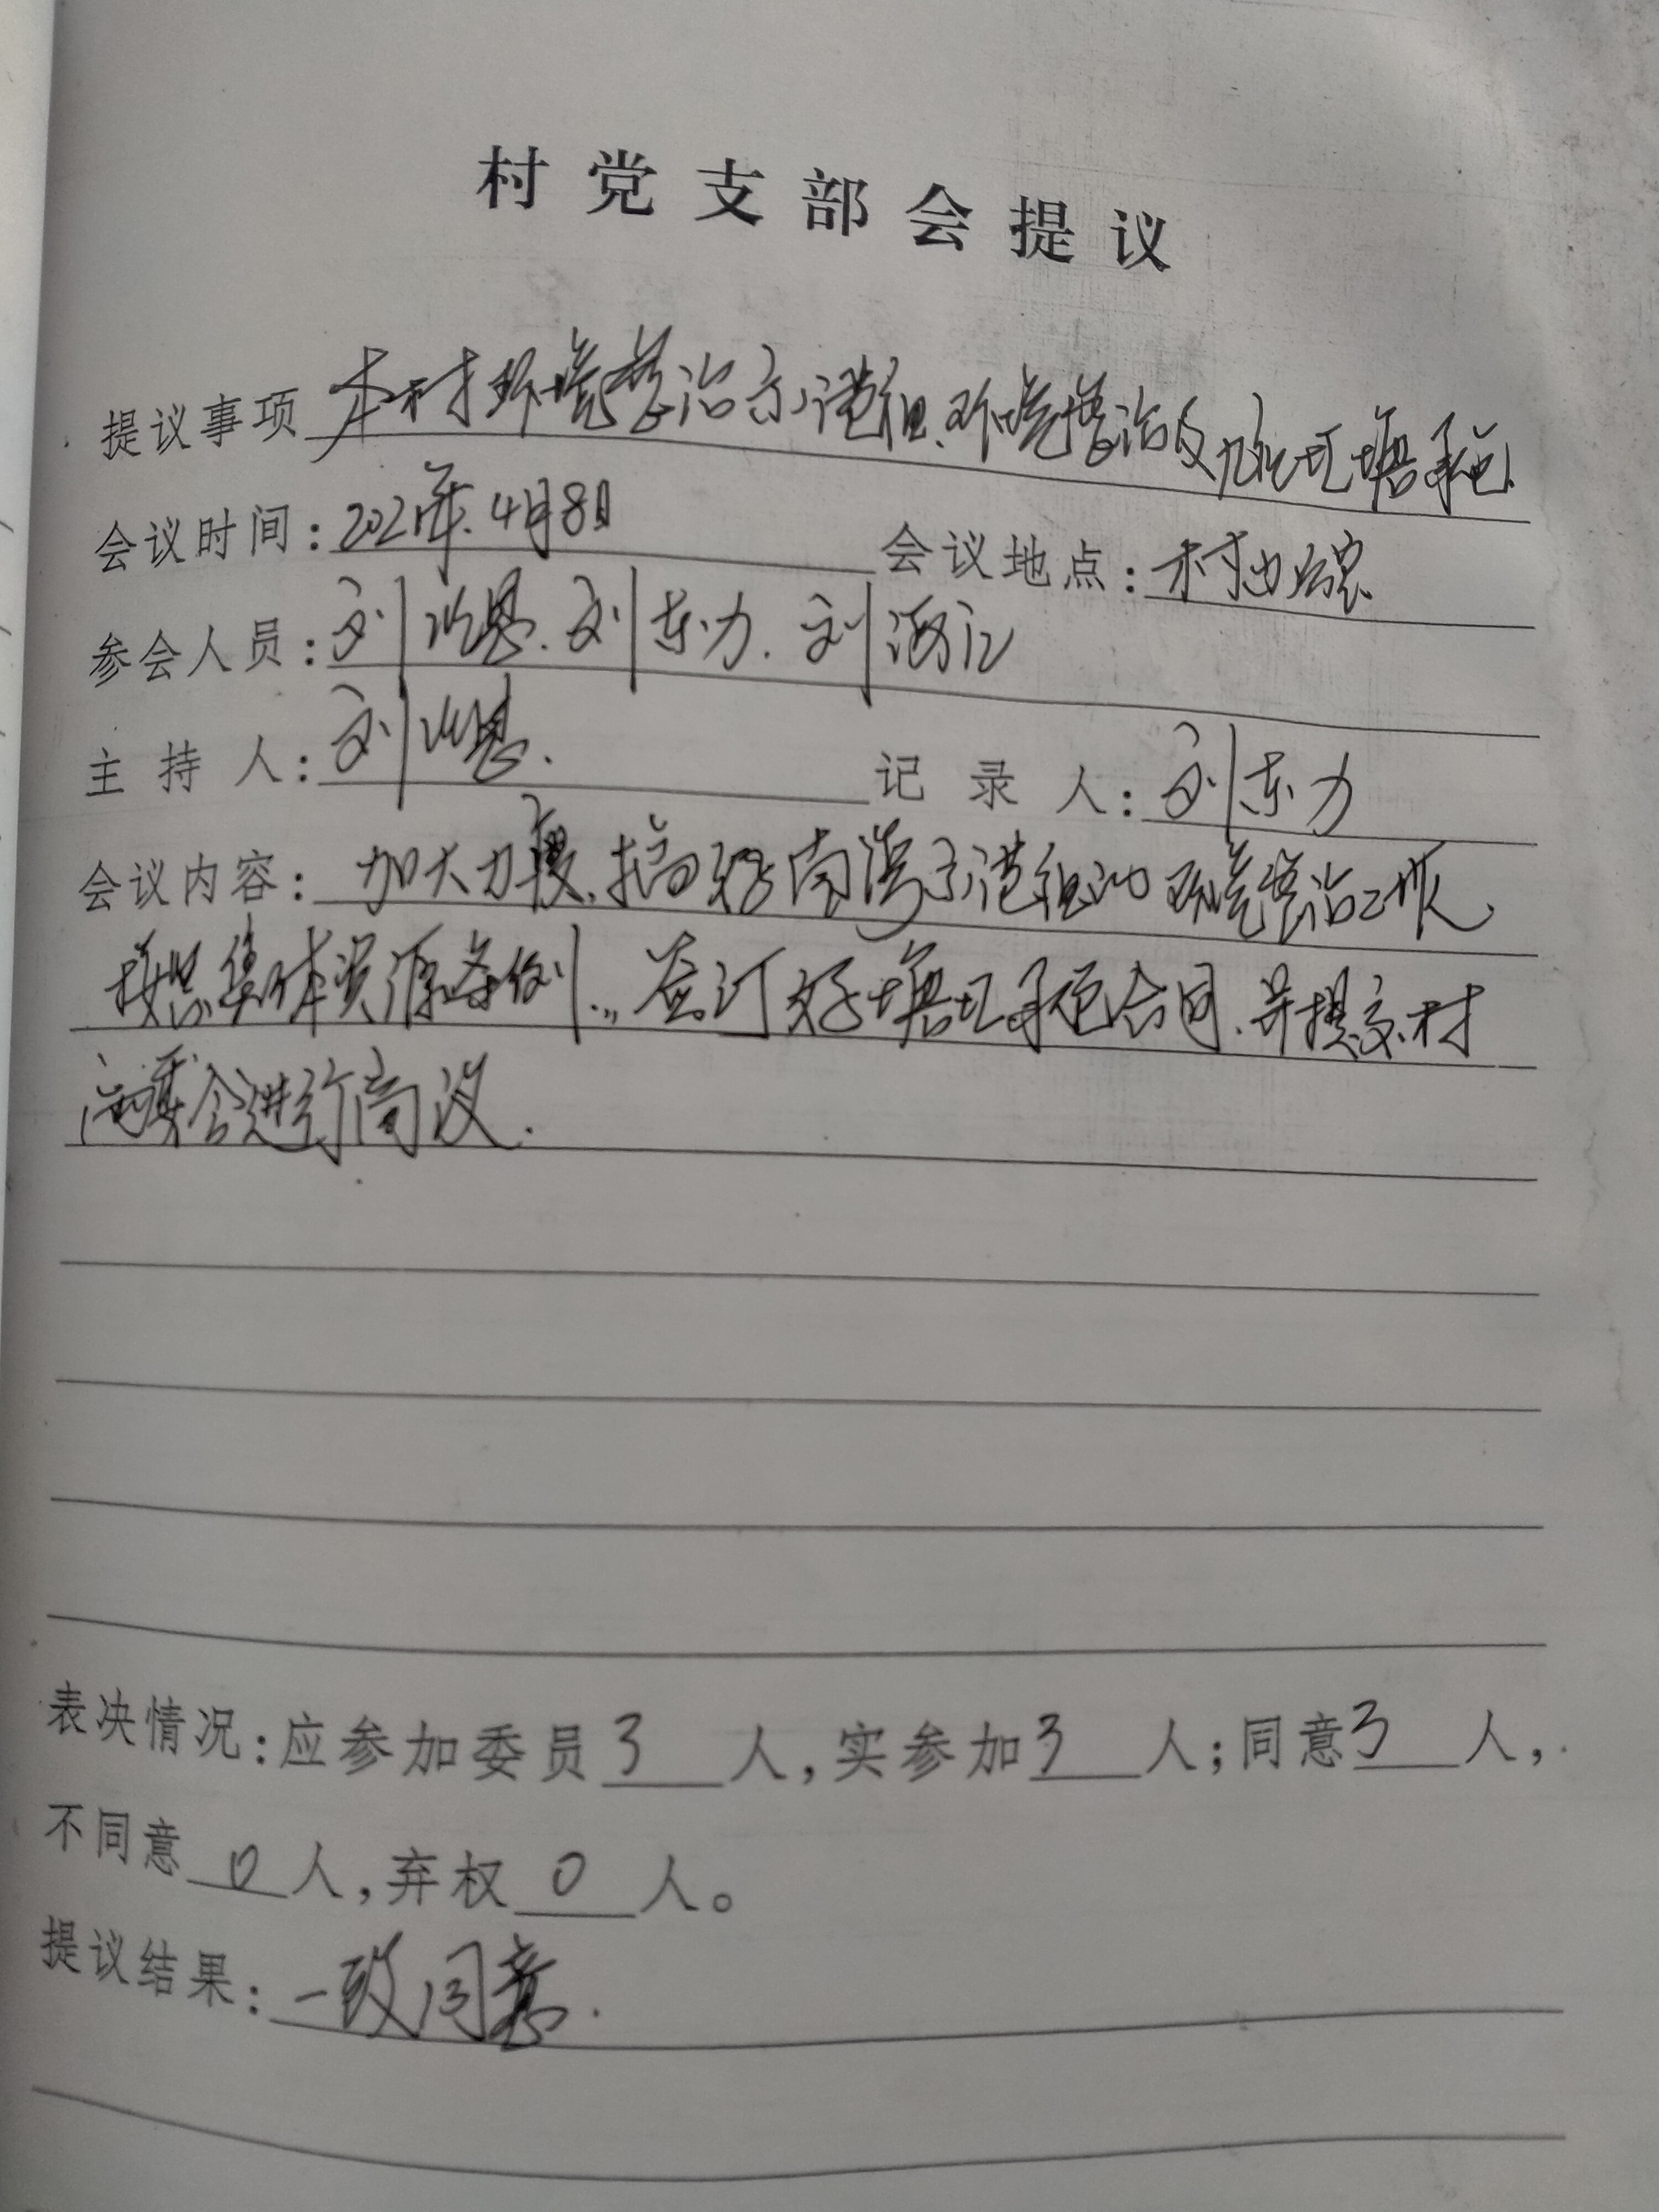 村党支部会提议
提议事项 本村环境整治示范组、环境整治及 圵塘承包.
会议时间：2021年.4月8日 会议地点：村办公室
参会人员：刘 思.刘东力.刘海江
主持人：刘 思. 记录人：刘东力
会议内容：加大力度.搞好南湾示范组的环境整治工作、
按照集体资源条例... 签订好塘 承包合同.并提交村
两委会进行商议.
表决情况：应参加委员3人，实参加3人；同意3人，
不同意0人，弃权0人。
提议结果：一致同意.